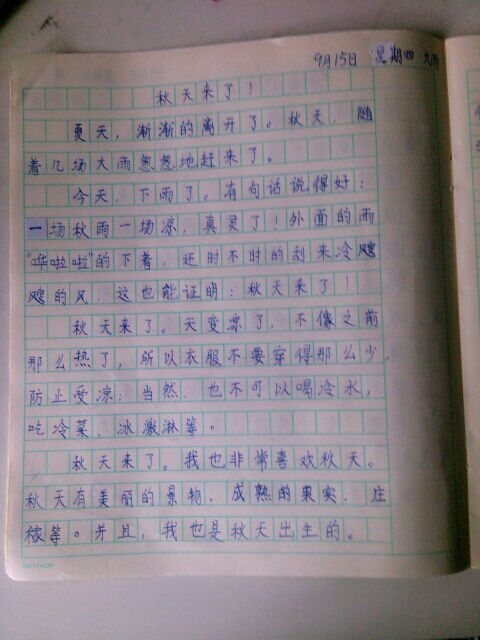 9月15日 星期四 大雨
秋天来了!
夏天，渐渐的离开了。秋天，随
着几场大雨忽忽地赶来了。
今天，下雨了。有句话说得好：
一场秋雨一场凉，真灵了!外面的雨
“哗啦啦”的下着，还时不时的刮来冷飕
飕的风，这也能证明：秋天来了!
秋天来了。天变凉了，不像之前
那么热了，所以衣服不要穿得那么少，
防止受凉；当然，也不可以喝冷水，
吃冷菜、冰激淋等。
秋天来了。我也非常喜欢秋天。
秋天有美丽的景物、成熟的果实、庄
稼等。并且，我也是秋天出生的。